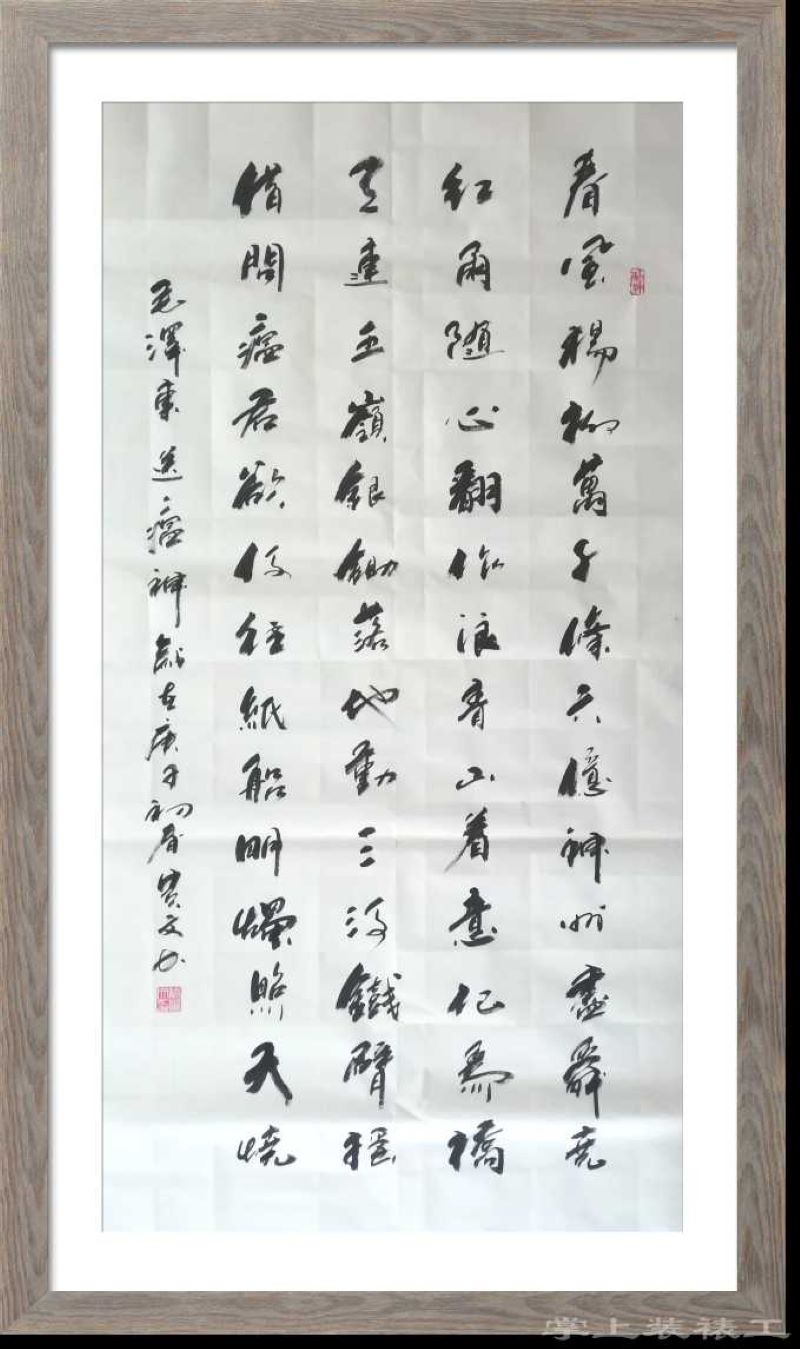 春風楊柳萬千條六億神州盡舜尭
紅雨随心翻作浪青山着意化為橋
天連五嶺銀鋤落地動三河鐵臂摇
借問瘟君欲何往紙船明燭照天燒
毛澤東送瘟神歲在庚子初春贵文书
掌上装裱工